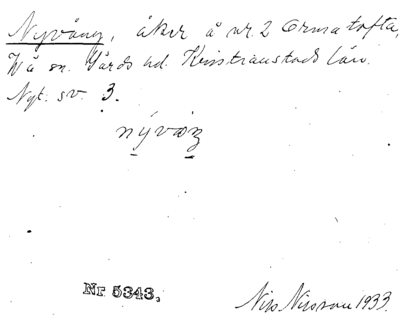 Nyvång, åker å nr. 2 Ormatofta,
Vä sn. Gärds hd. Kristianstads län.
Nyt. sv. 3.
nývåŋ
Nr 5343.
Nils Nilsson 1933.